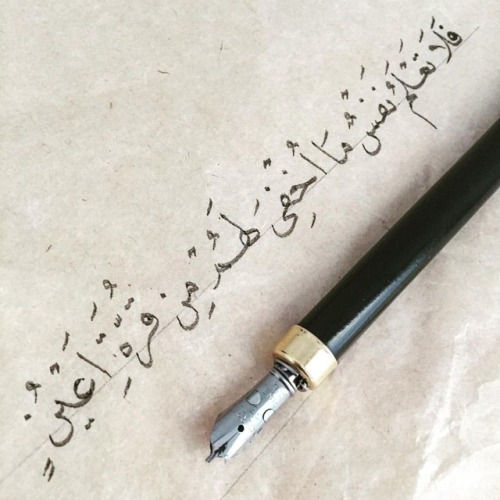 فَلَا تَعْلَمُ نَفْسٌ مَّا أُخْفِيَ لَهُم مِّن قُرَّةِ أَعْيُنٍ